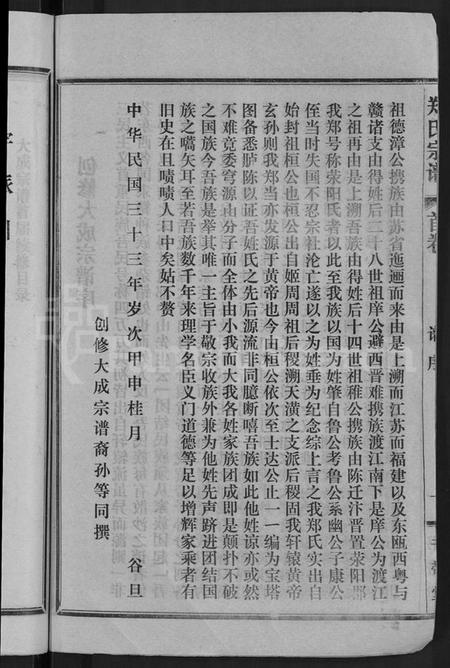 郑氏宗谱 首卷 谱序
祖德漳公携族由苏省迤逦而来由是上溯而江苏而福建以及东瓯西粤与
赣诸支由得姓后二十八世祖庠公避西晋难携族渡江南下是庠公为渡江
之祖再由是上溯吾族由得姓后十四世祖稚公携族由陈迁汴晋置荥阳郡
我郑号称荥阳氏者以此至我族以国为姓肇自鲁公考鲁公系幽公子康公
侄当时失国不忍宗社沦亡遂以之为姓垂为纪念综上言之我郑氏实出自
始封祖桓公也桓公出自姬周周祖后稷溯天潢之支派后稷固我轩辕黄帝
玄孙则我郑当亦发源于黄帝也今由桓公依次至士达公止一一编为宝塔
图备悉胪陈以证吾姓氏之先后源流非同臆断嘻吾族如此他姓谅亦或然
不难竟委穷源由分子而全体由小我而大我各姓家族团成即是颠扑不破
之国族今吾族是举其唯一主旨于敬宗收族外兼为他姓先声跻进团结国
族之嚆矢耳至若吾族数千年来理学名臣义门道德等足以增辉家乘者有
旧史在且啧啧人口中矣姑不赘
中华民国三十三年岁次甲申桂月 谷旦
创修大成宗谱裔孙等同撰